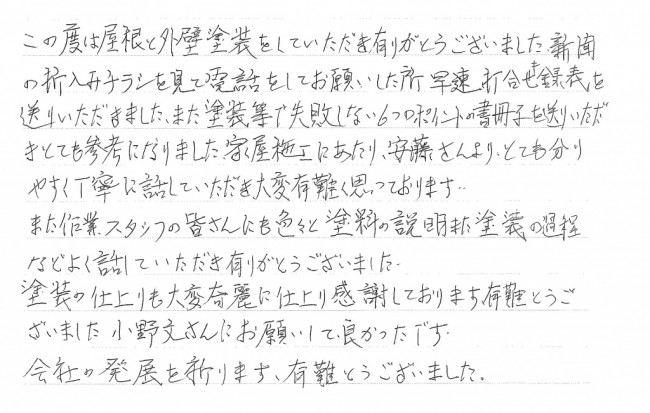 この度は屋根と外壁塗装をしていただき有りがとうございました、新聞
の折入みチラシを見て電話をしてお願いした所早速、打合せ録表を
送りいただきました、また塗装等で失敗しない6つのポイントの書冊子を送りいただ
きとても参考になりました、家屋施工にあたり、安藤さんより、とても分り
やすく丁寧に話していただき大変有難く思っております。
また作業スタッフの皆さんにも色々と塗料の説明また塗装の過程
などよく話していただき有りがとうございました。
塗装の仕上りも大変奇麗に仕上り感謝しております有難とうご
ざいました 小野文さんにお願いして良かったです。
会社の発展を祈ります、有難とうございました。